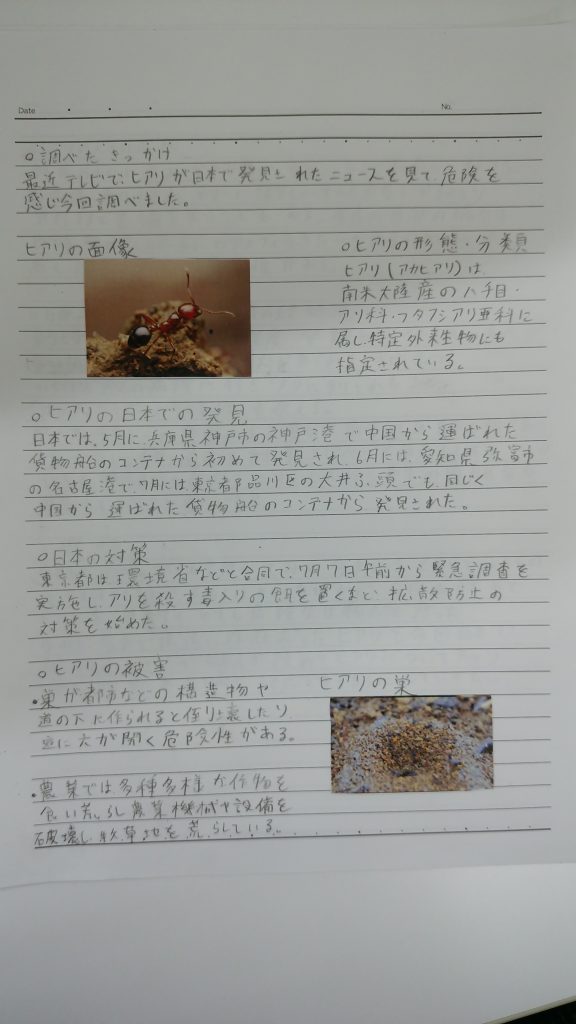 Date
No.
○調べたきっかけ
最近テレビで、ヒアリが日本で発見されたニュースを見て、危険を
感じ今回調べました。
ヒアリの画像
○ヒアリの形態・分類
ヒアリ(アカヒアリ)は、
南米大陸産のハチ目・
アリ科・フタフシアリ亜科に
属し、特定外来生物にも
指定されている。
○ヒアリの日本での発見
日本では、5月に、兵庫県神戸市の神戸港で中国から運ばれた
貨物船のコンテナから初めて発見され、6月には、愛知県弥富市
の名古屋港で、7月には東京都品川区の大井ふ頭でも、同じく
中国から運ばれた貨物船のコンテナから発見された。
○日本の対策
東京都は環境省などと合同で、7月7日午前から緊急調査を
実施し、アリを殺す毒入りの餌を置くなど、拡散防止の
対策を始めた。
○ヒアリの被害
・巣が都市などの構造物や
道の下に作られると倒壊したり、
道に穴が開く危険性がある。
ヒアリの巣
・農業では、多種多様な作物を
食い荒らし農業機械や設備を
破壊し、牧草地を荒らしている。